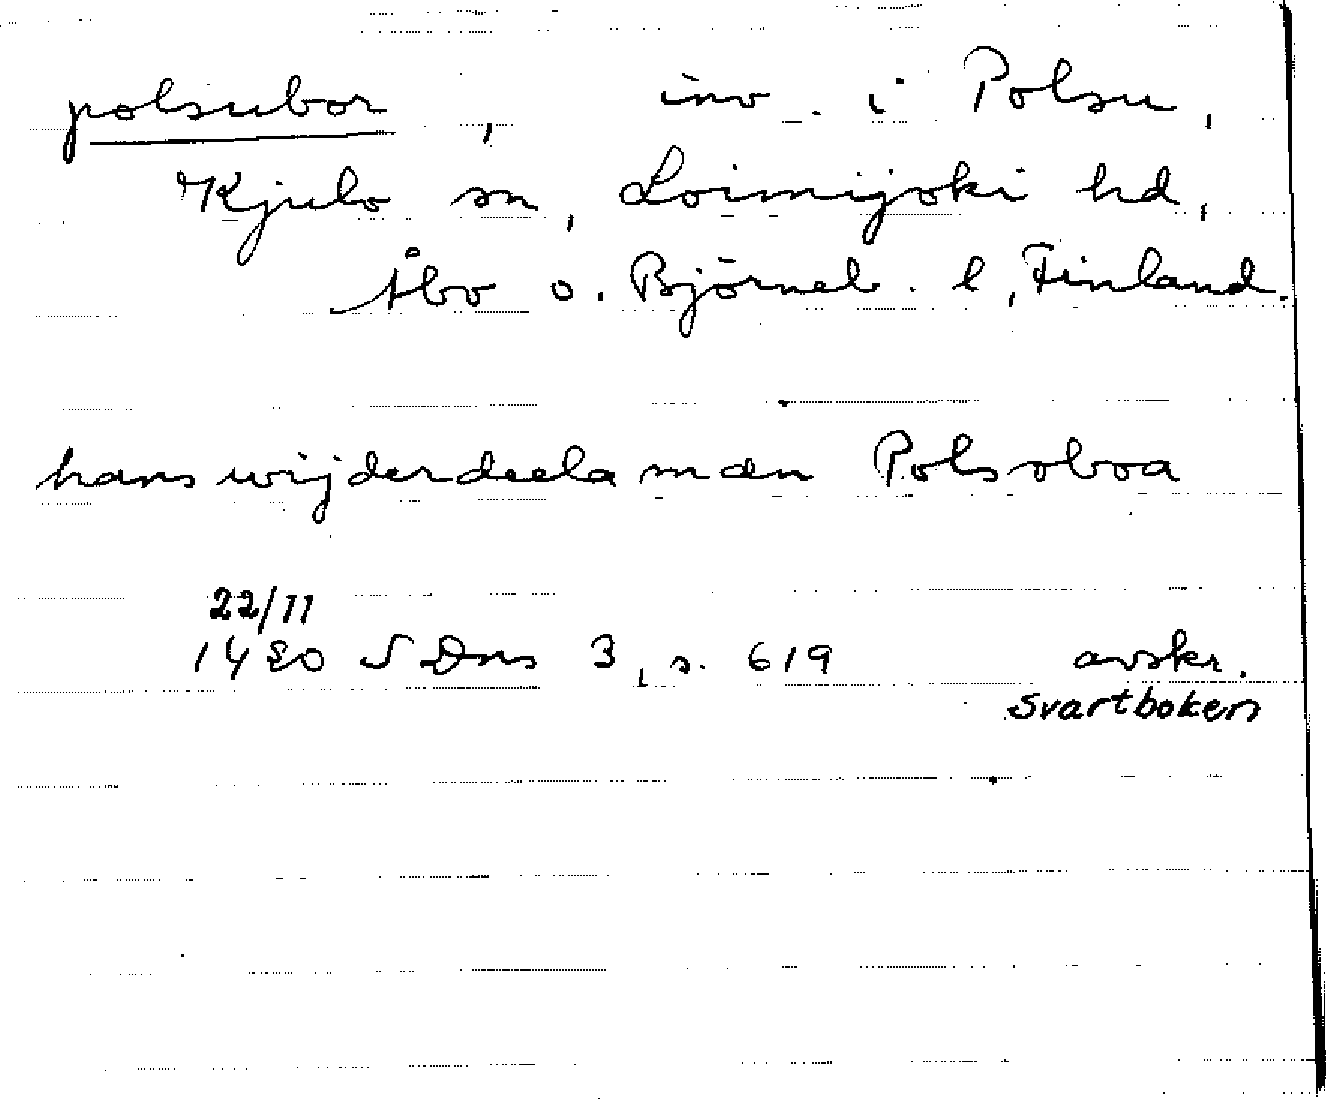 polsubor, inv. i Polsu,
Kjulo sn, Loimijoki hd,
Åbo o. Björneb. l, Finland.
hans wijderdeela mæn Polsoboa
22/11
1420 SDns 3, s. 619 avskr.
Svartboken